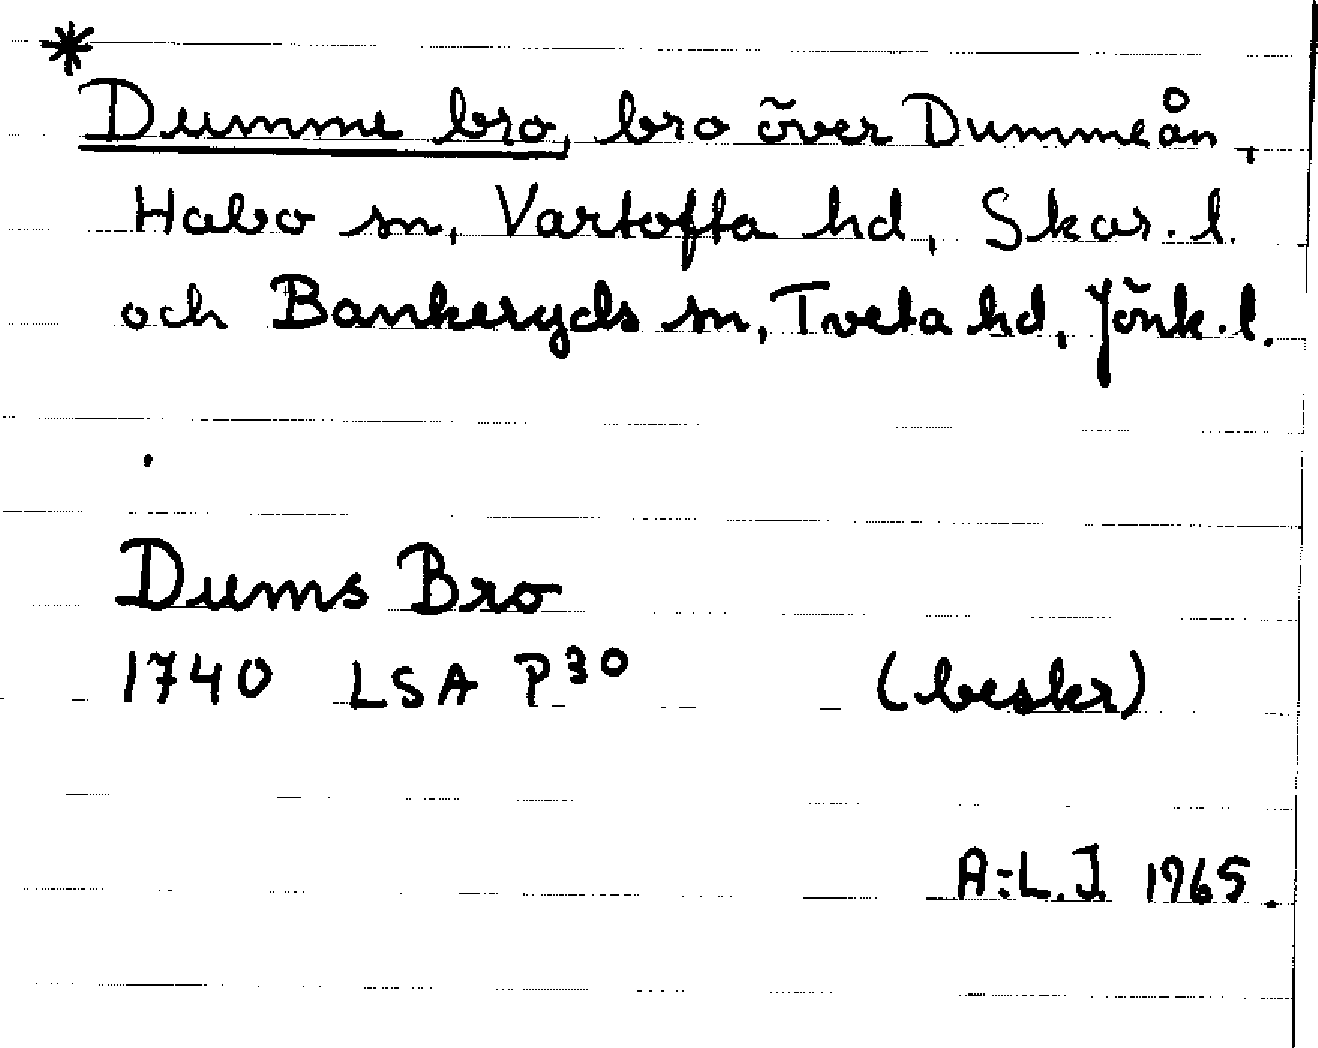 * Dumme bro, bro över Dummeån,
Habo sn, Vartofta hd, Skar. l.
och Bankeryds sn, Tveta hd, Jönk. l.
Dums Bro
1740 LSA P30 (beskr)
A:L.J. 1965.